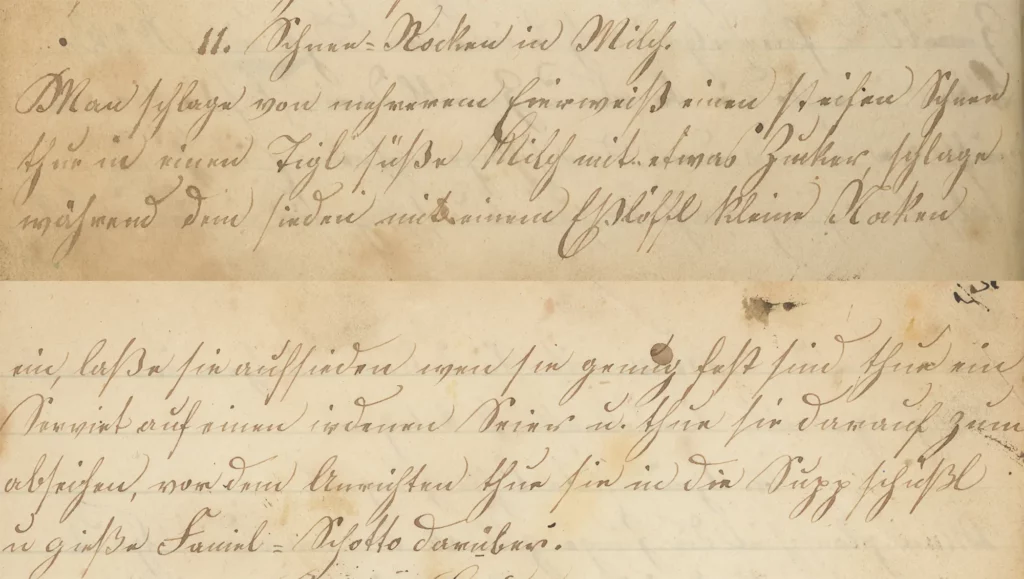 11. Schnee=Nocken in Milch.
Man schlage von mehrerem Eierweiß einen steifen Schnee
thue in einen Tigl süße Milch mit etwas Zucker, schlage
während dem sieden mit einem Eßlöffl kleine Nocken
ein, laße sie aufsieden wen sie genug fest sind, thue ein
Serviet auf einen irdenen Seier u. thue sie darauf zum
abseihen, vor dem Anrichten thue sie in die Suppschüßl
u gieße darüber.